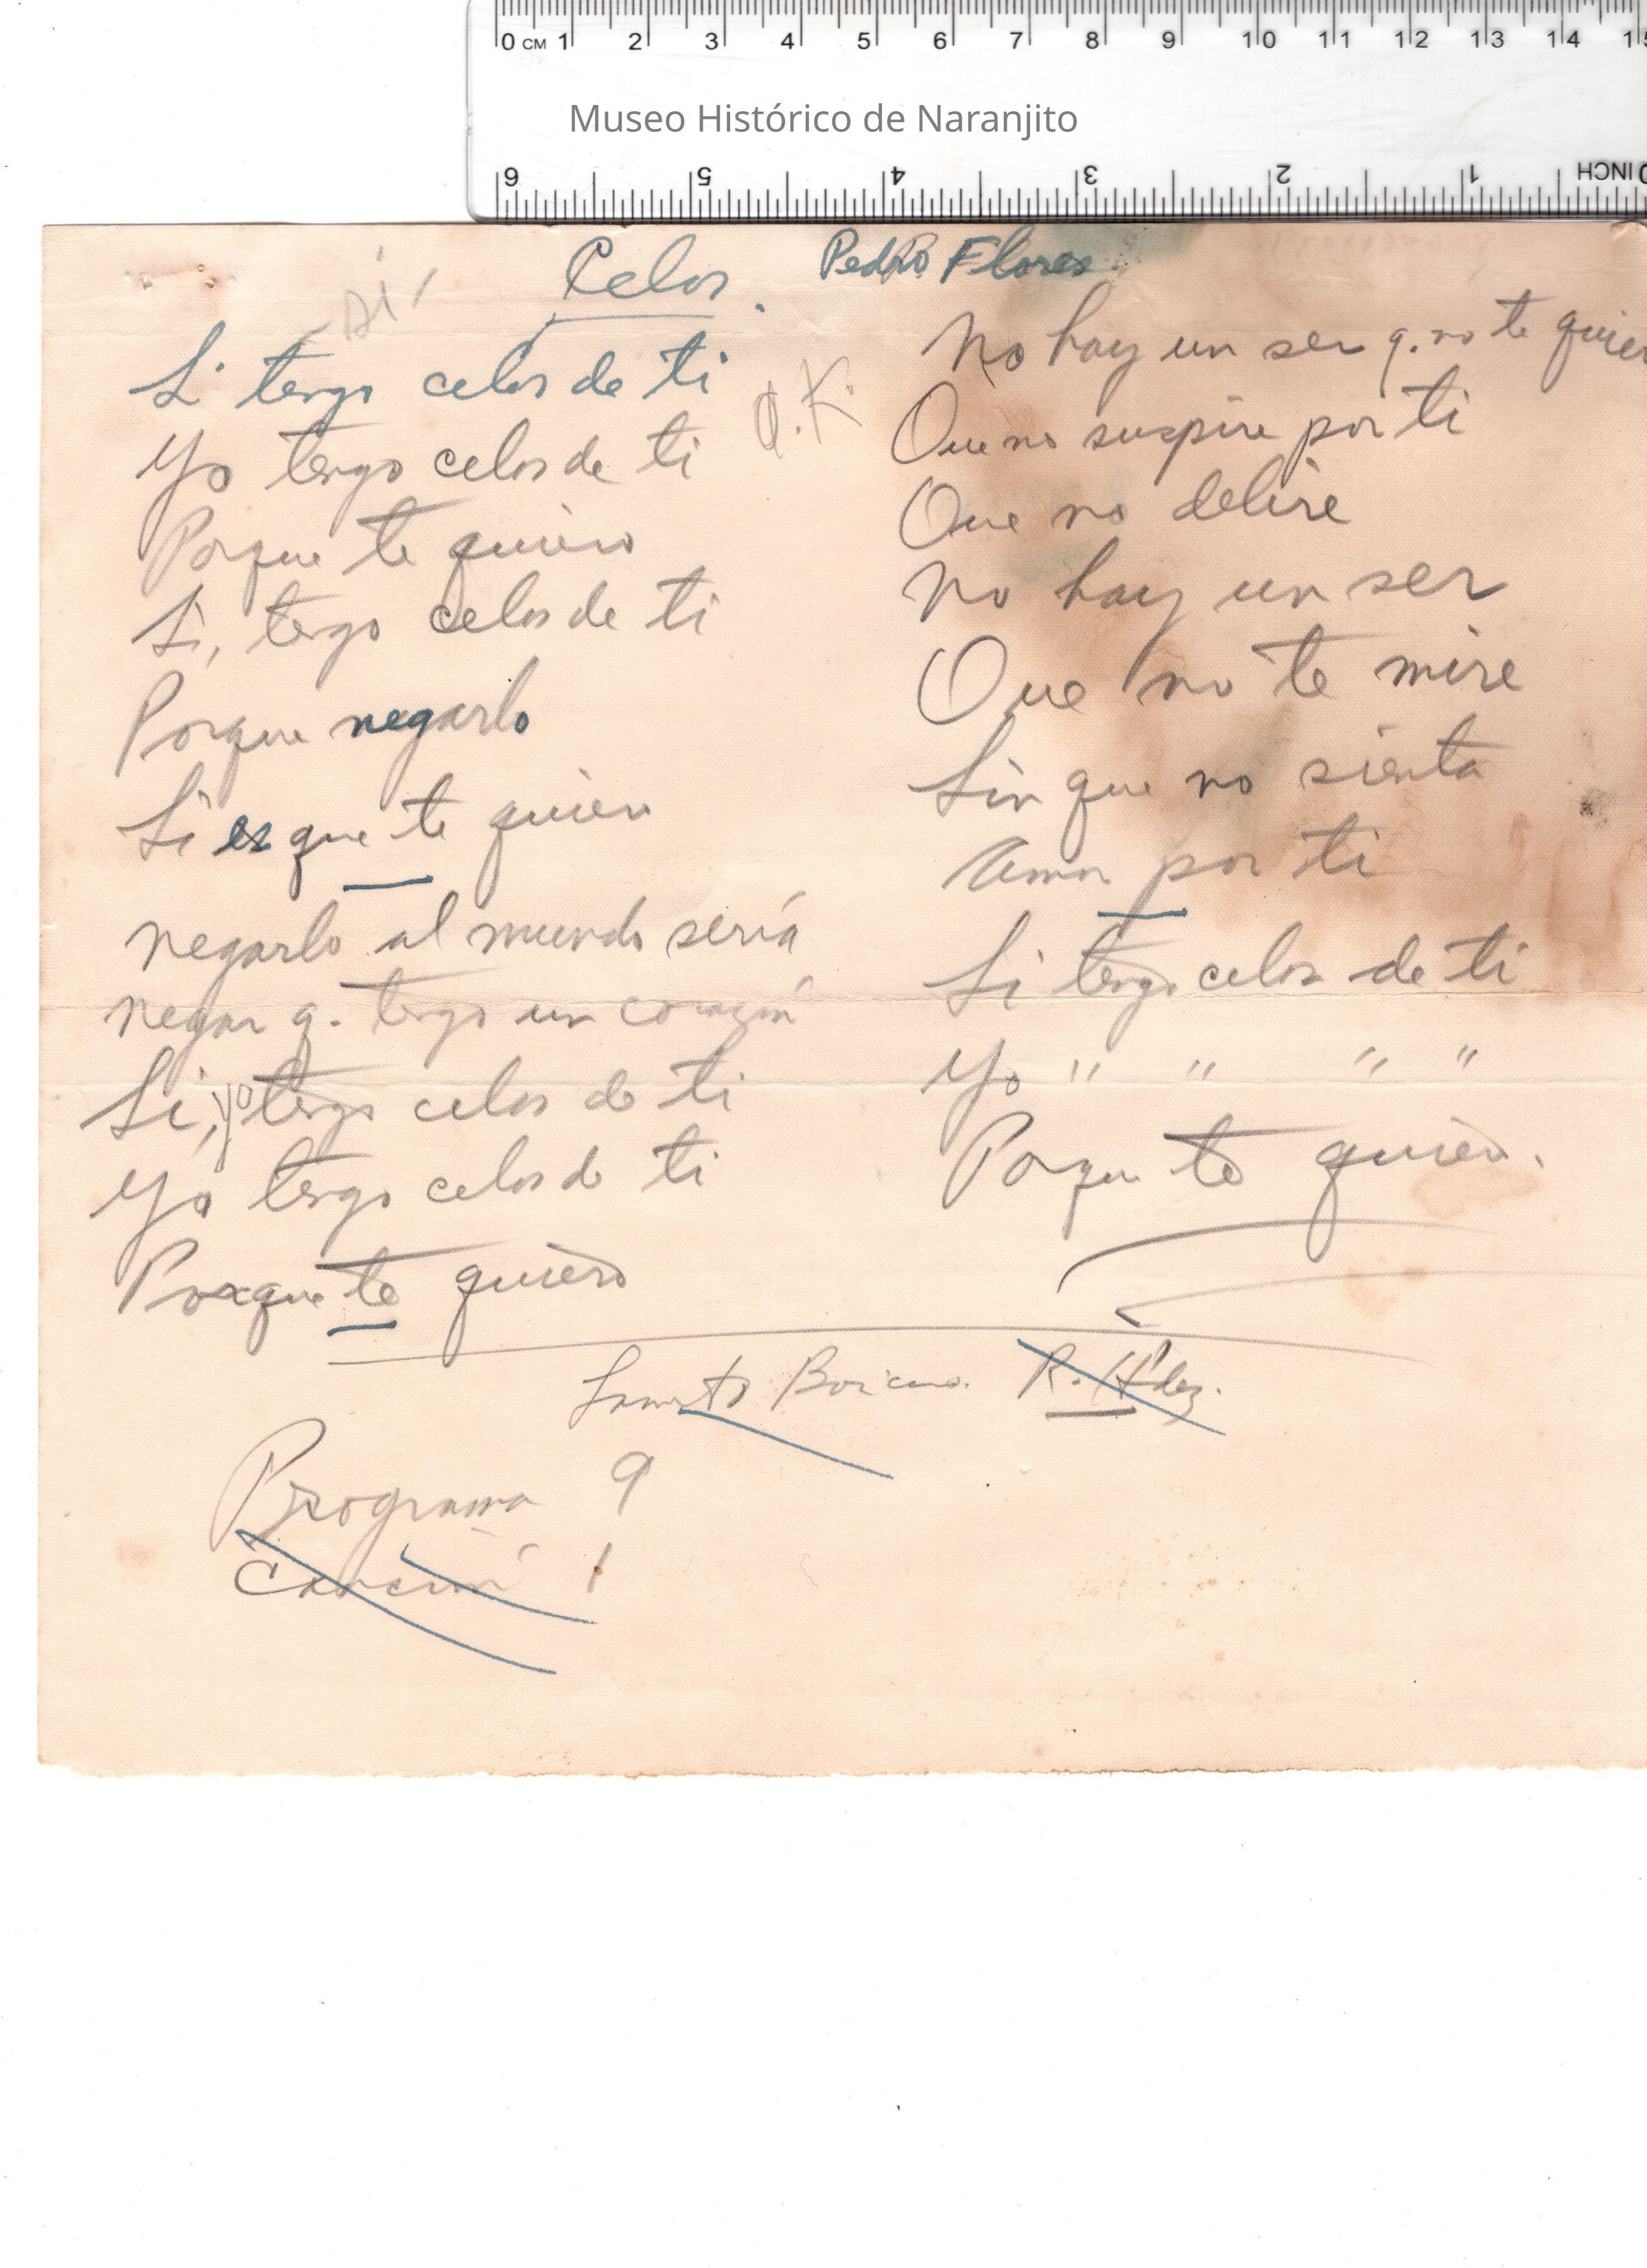 0 CM 1 2 3 4 5 6 7 8 9 10 11 12 13 14 15
Museo Histórico de Naranjito
6 5 4 3 2 1 0 INCH
Celos. Pedro Flores
si
Si tengo celos de ti
O.K.
Yo tengo celos de ti
Porque te quiero
Si, tengo celos de ti
Porque negarlo
Si es que te quiero
negarlo al mundo sería
negar q. tengo un corazón
Si, yo tengo celos de ti
Yo tengo celos de ti
Porque te quiero
No hay un ser q. no te quier
Que no suspire por ti
Que no delire
No hay un ser
Que no te mire
Sin que no sienta
Amor por ti
Si tengo celos de ti
Yo " " " "
Porque te quiero.
Lamento Boricano. R. H'dez.
Programa 9
Canción 1